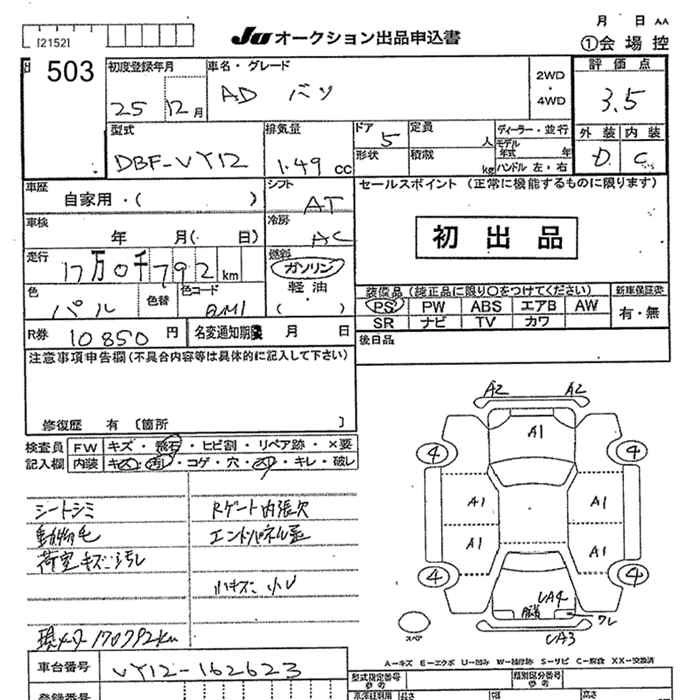 月 日 AA
[2152]
JU オークション出品申込書
①会場控
503
初度登録年月
25 12月
車名・グレード
AD バン
2WD
・
4WD
評価点
3.5
外装 内装
D C
型式
DBF-VY12
排気量
1.49 cc
ドア
5
形状
定員
人
積載
kg
ディーラー・並行
モデル年式 年
ハンドル 左・右
車歴
自家用・( )
シフト
AT
セールスポイント (正常に機能するものに限ります)
初出品
車検
年 月( 日)
冷房
AC
走行
17万0千792km
燃料
ガソリン
軽油
( )
色
パル
色替
色コード
装備品 (純正品に限り○をつけてください)
PS PW ABS エアB AW
SR ナビ TV カワ
新車保証書
有・無
R券 10850 円
名変通知期限 月 日
後日品
注意事項申告欄 (不具合内容等は具体的に記入して下さい)
修復歴 有 [箇所 ]
検査員 FW キズ・飛石・ヒビ割・リペア跡・×要
記入欄 内装 キズ・汚レ・コゲ・穴・スリ・キレ・破レ
シートシミ
動物毛
荷室キズ汚レ
Rゲート内張欠
エンドパネル歪
小キズ 小U
現メータ 170792km
車台番号 VY12-162623
登録番号
A2 A2
A1
4 4
A1 A1
A1 A1
4 4
UA4
ワレ
UA3
スペア
A-キズ E-エクボ U-凹み W-補修跡 S-サビ C-腐食 XX-交換済
型式指定番号
参考
類別区分番号
参考
長さ
高さ